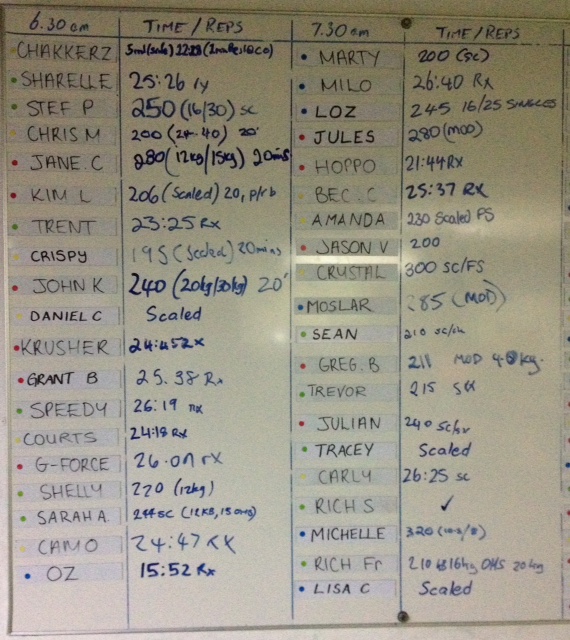 6.30 am TIME/REPS
CHAKKERZ
SHARELLE 25:26
STEF P 250 (16/30) SC
CHRIS M 200 (24-40) 20'
JANE.C 280 (12kg/15kg) 20mins
KIM L 206 (Scaled) 20, p/rb
TRENT 23:25 Rx
CRISPY 195 (Scaled) 20mins
JOHN K 240 (20kg/30kg) 20'
DANIEL C Scaled
KRUSHER 24:45Rx
GRANT B 25.38 Rx
SPEEDY 26:19 rx
COURTS 24:18 Rx
G-FORCE 26.07 rx
SHELLY 220 (12kg)
SARAH A.
CAMO 24:47 RX
OZ 15:52 Rx
7.30 am TIME/REPS
MARTY 200 (SC)
MILO 26:40 Rx
LOZ 245 16/25 SINGLES
JULES 280 (MOD)
HOPPO 21:44Rx
BEC.C 25:37 RX
AMANDA 230 Scaled FS
JASON V 200
CRYSTAL 300 SC/FS
MOSLAR 285 (MOD)
SEAN 210
GREG.B 211 MOD 40kg.
TREVOR 215
JULIAN 240
TRACEY Scaled
CARLY 26:25 SC
RICH S ✓
MICHELLE 320
RICH Fr 210 16kg OHS 20kg
LISA C Scaled